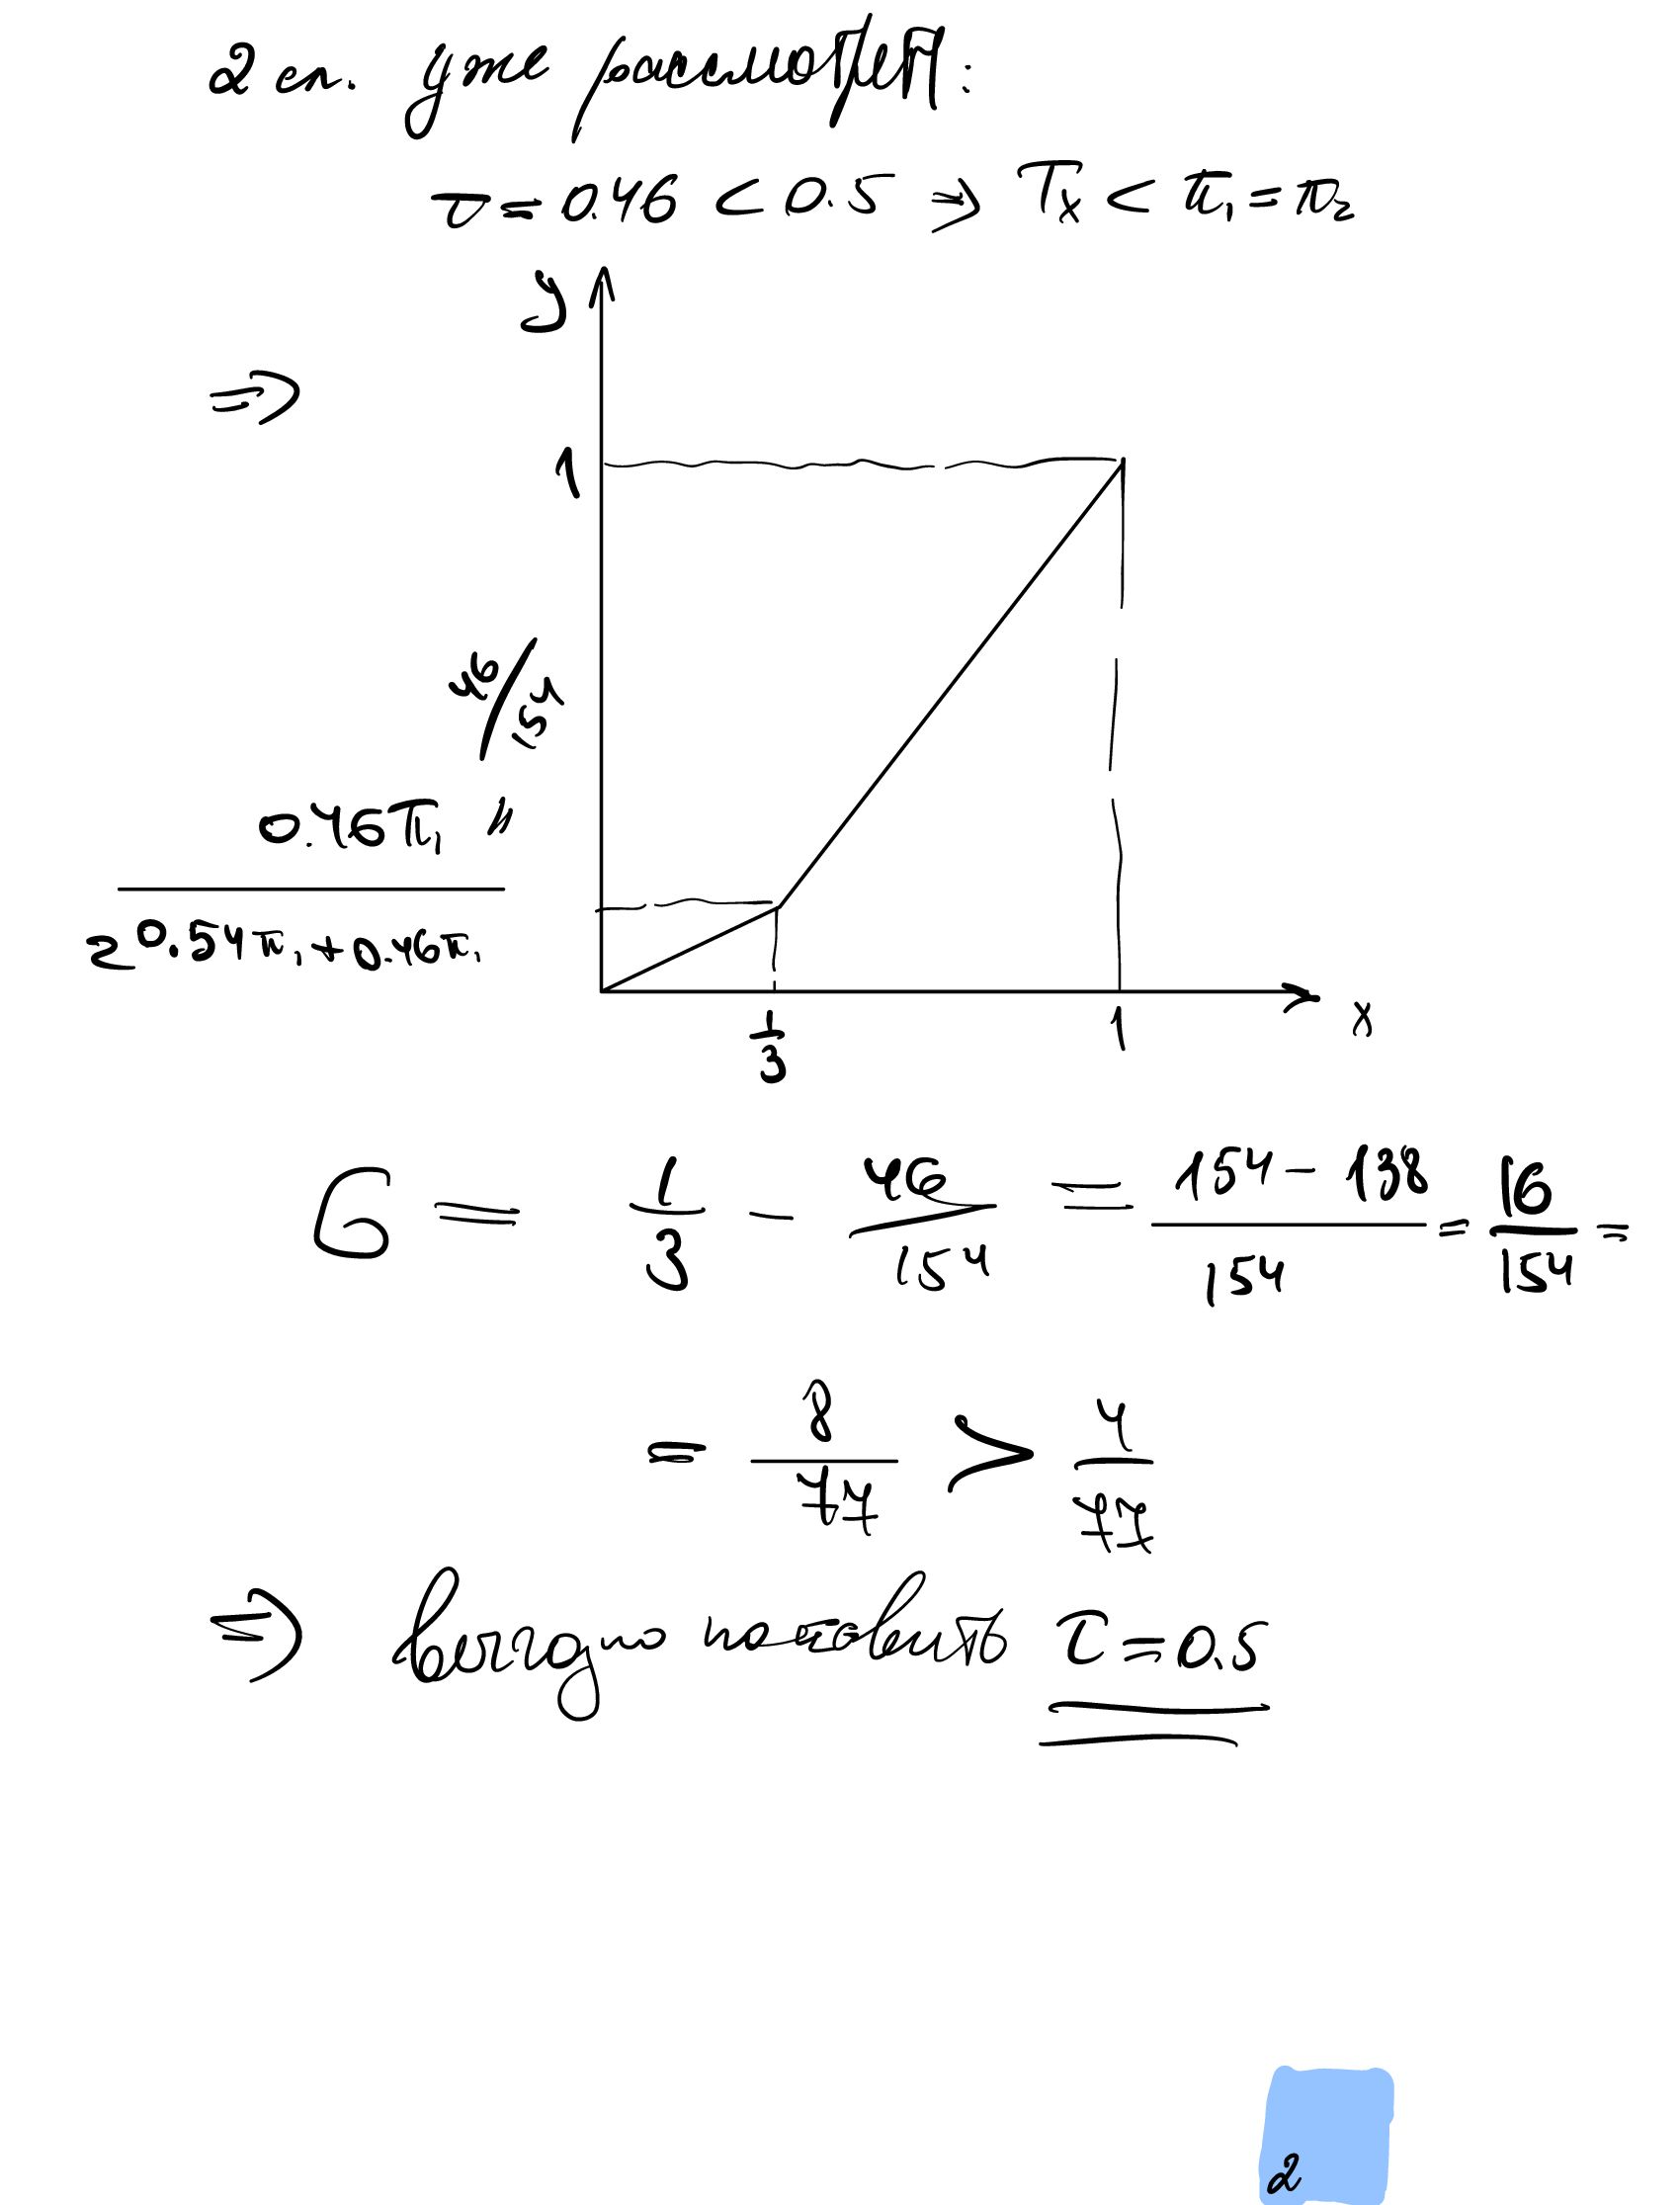 2 сл. уже рассмотрет:
τ = 0.46 < 0.5 ⇒ Tx < π₁ = π₂
y
⇒
1
46/154
"
0.46π₁
2 0.54π₁ + 0.46π₁
1/3
1
x
G = 1/3 − 46/154 = 154 − 138 / 154 = 16/154 =
= 8/77 > 4/77
⇒ выгодно поставить τ = 0,5
2